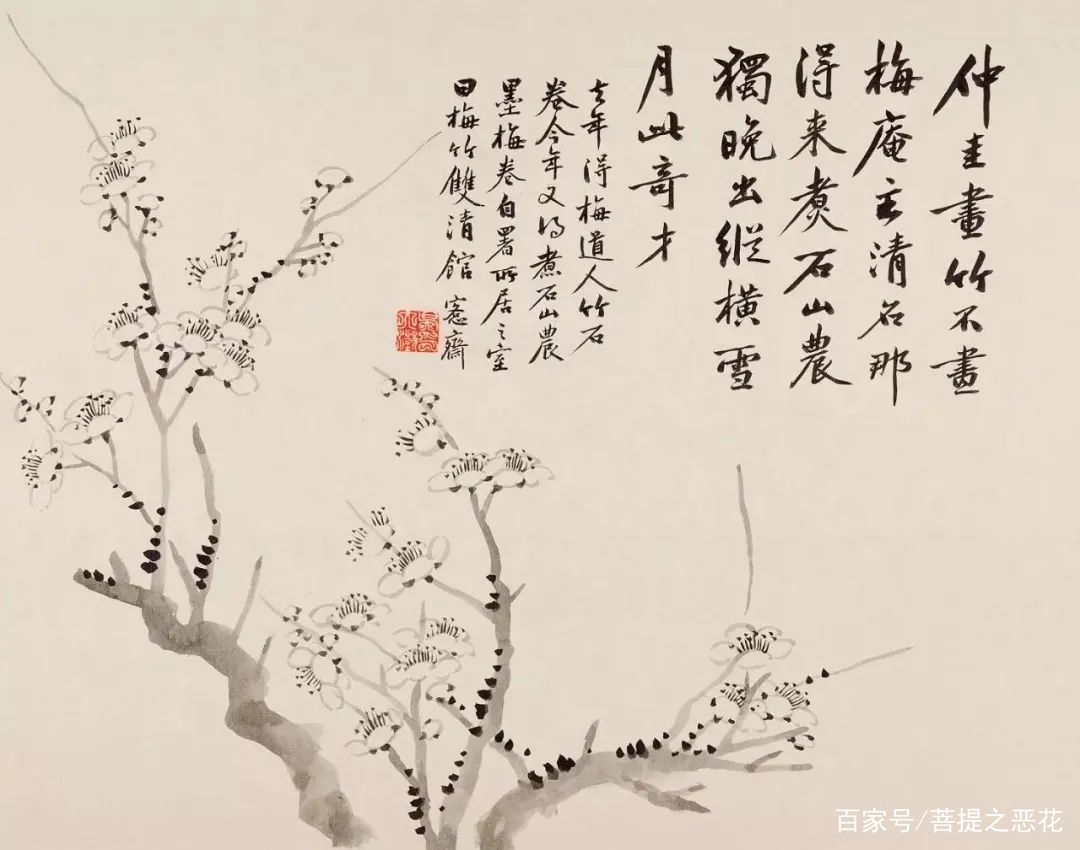 仲圭畫竹不畫
梅庵主清名那
得来煑石山農
獨晚出縱橫雪
月此奇才
去年得梅道人竹石
卷今年又得煮石山農
墨梅卷自署所居之室
曰梅竹雙清館 愙齋
百家号/菩提之恶花